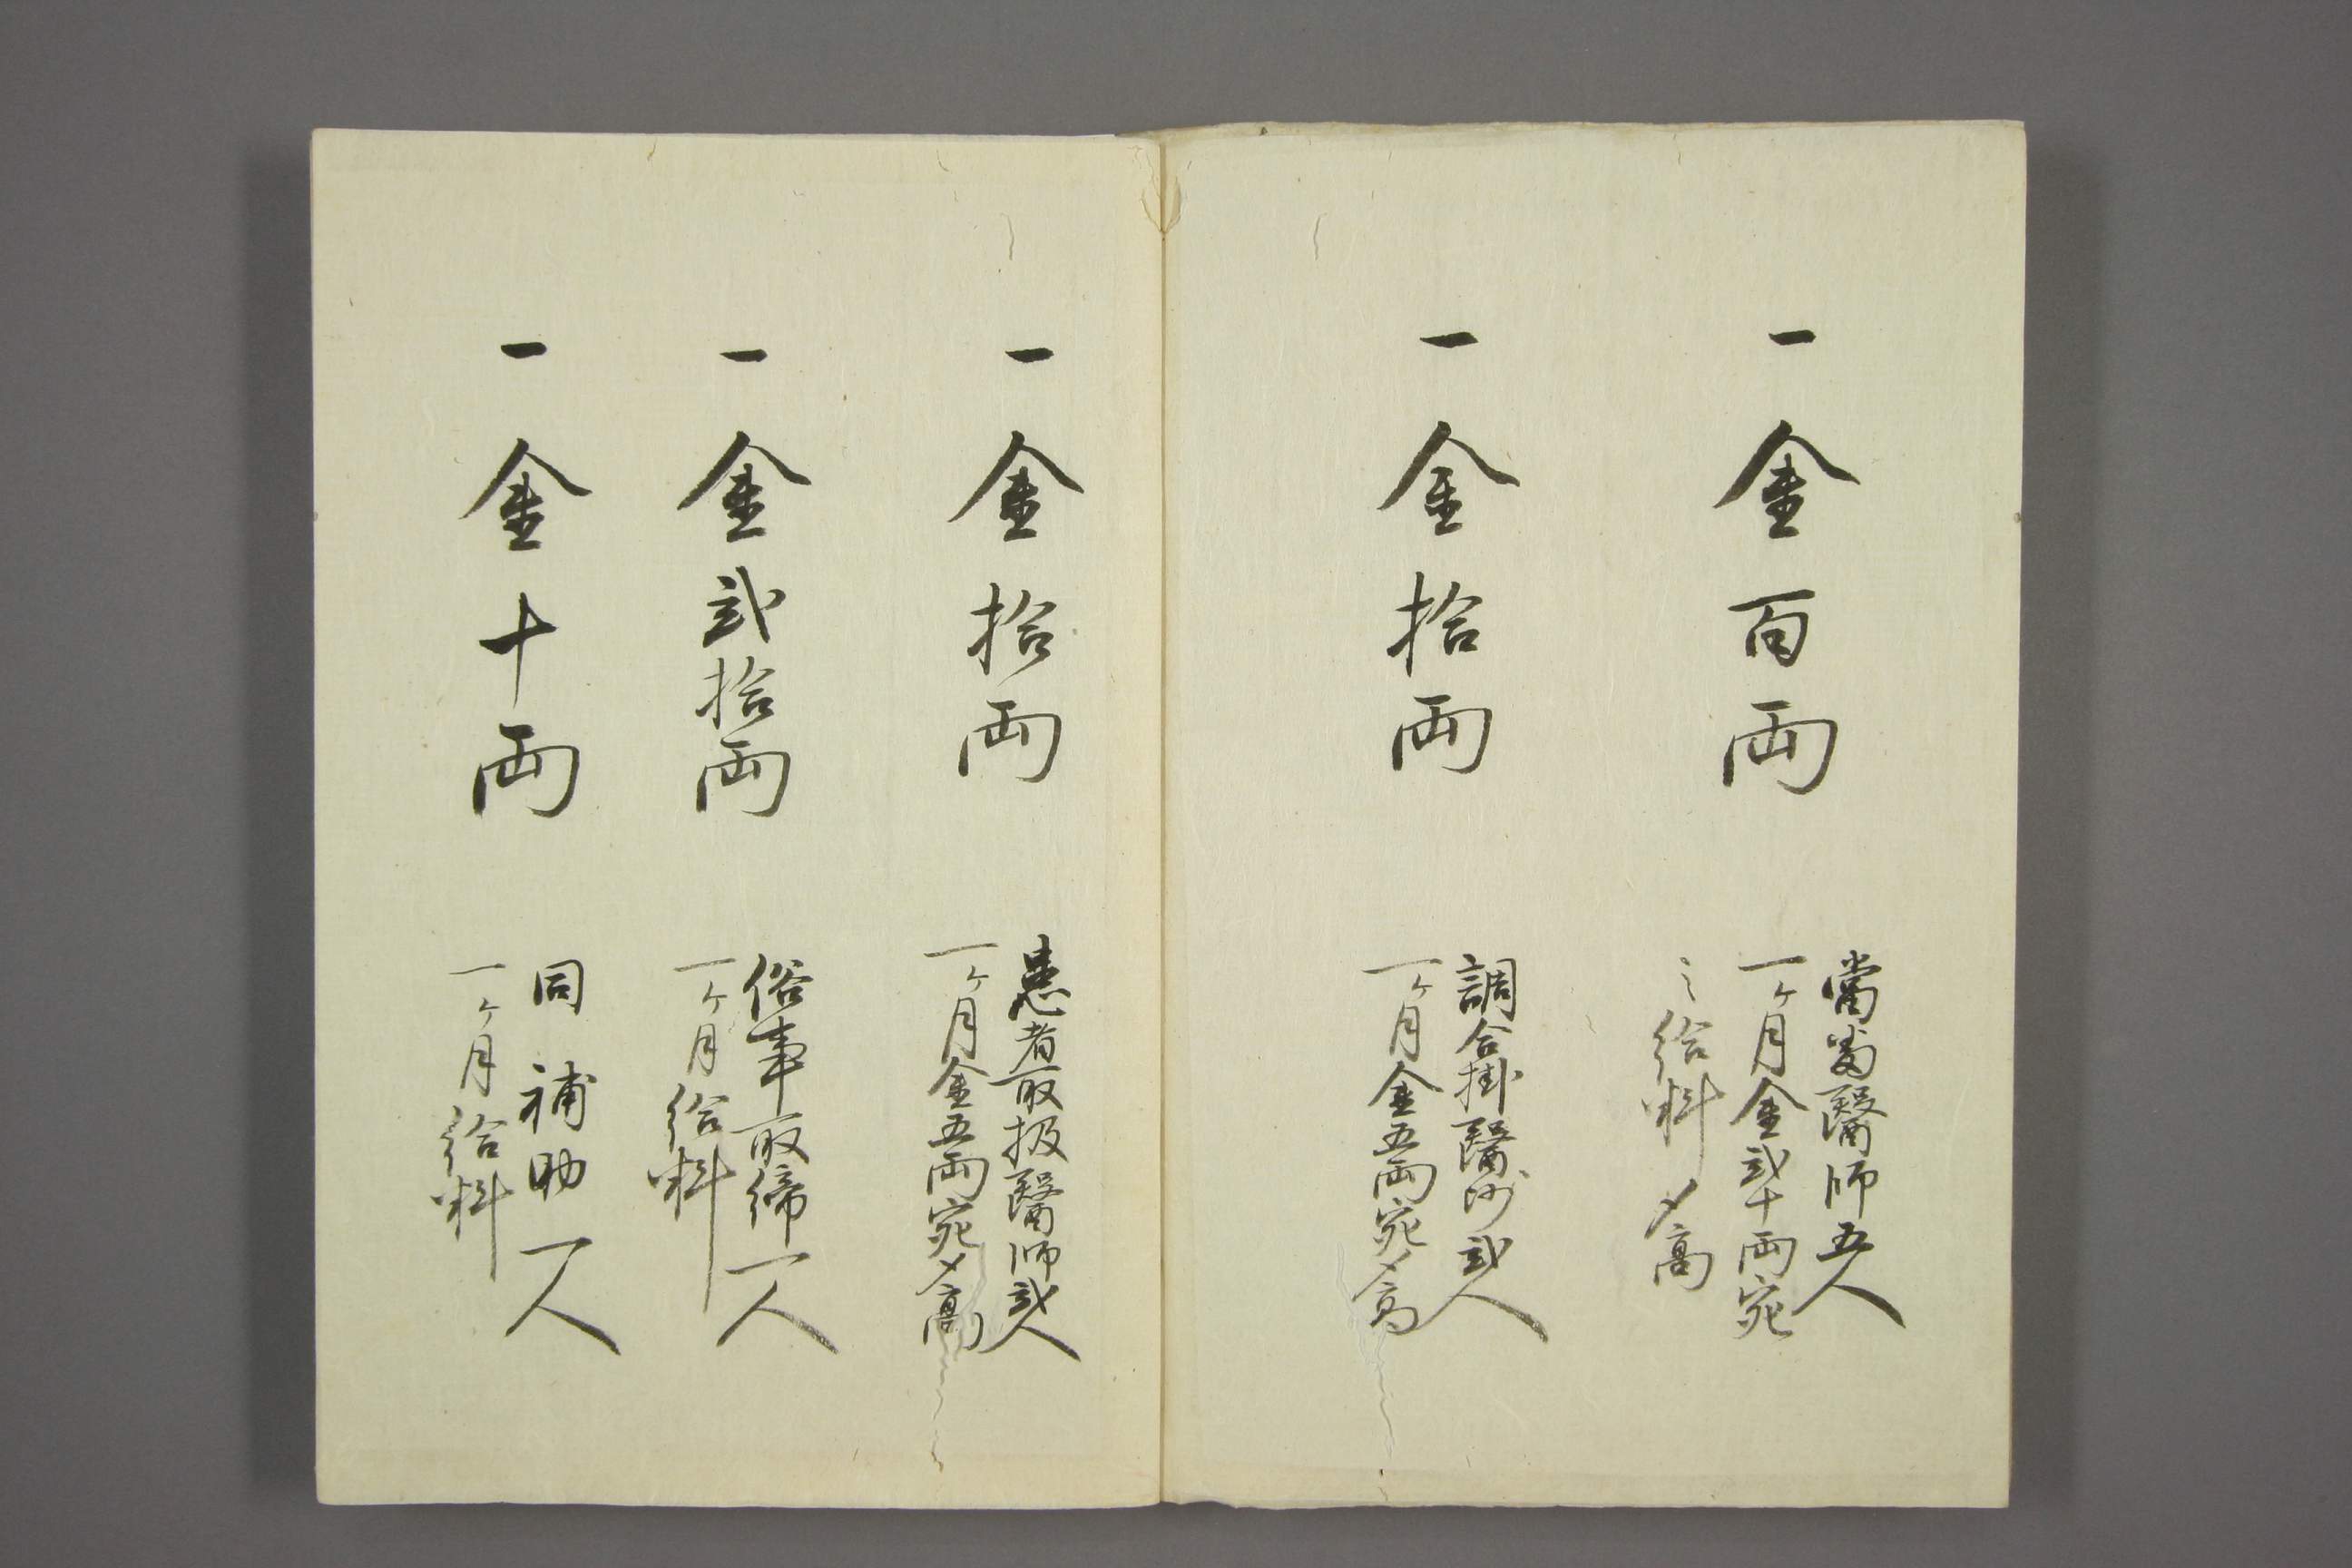 一金百両
當番醫師五人
一ヶ月金弐十両宛
之給料〆高
一金拾両
調合掛醫師弐人
一ヶ月金五両宛〆高
一金拾両
患者取扱醫師弐人
一ヶ月金五両宛〆高
一金弐拾両
俗事取締一人
一ヶ月給料
一金十両
同補助一人
一ヶ月給料